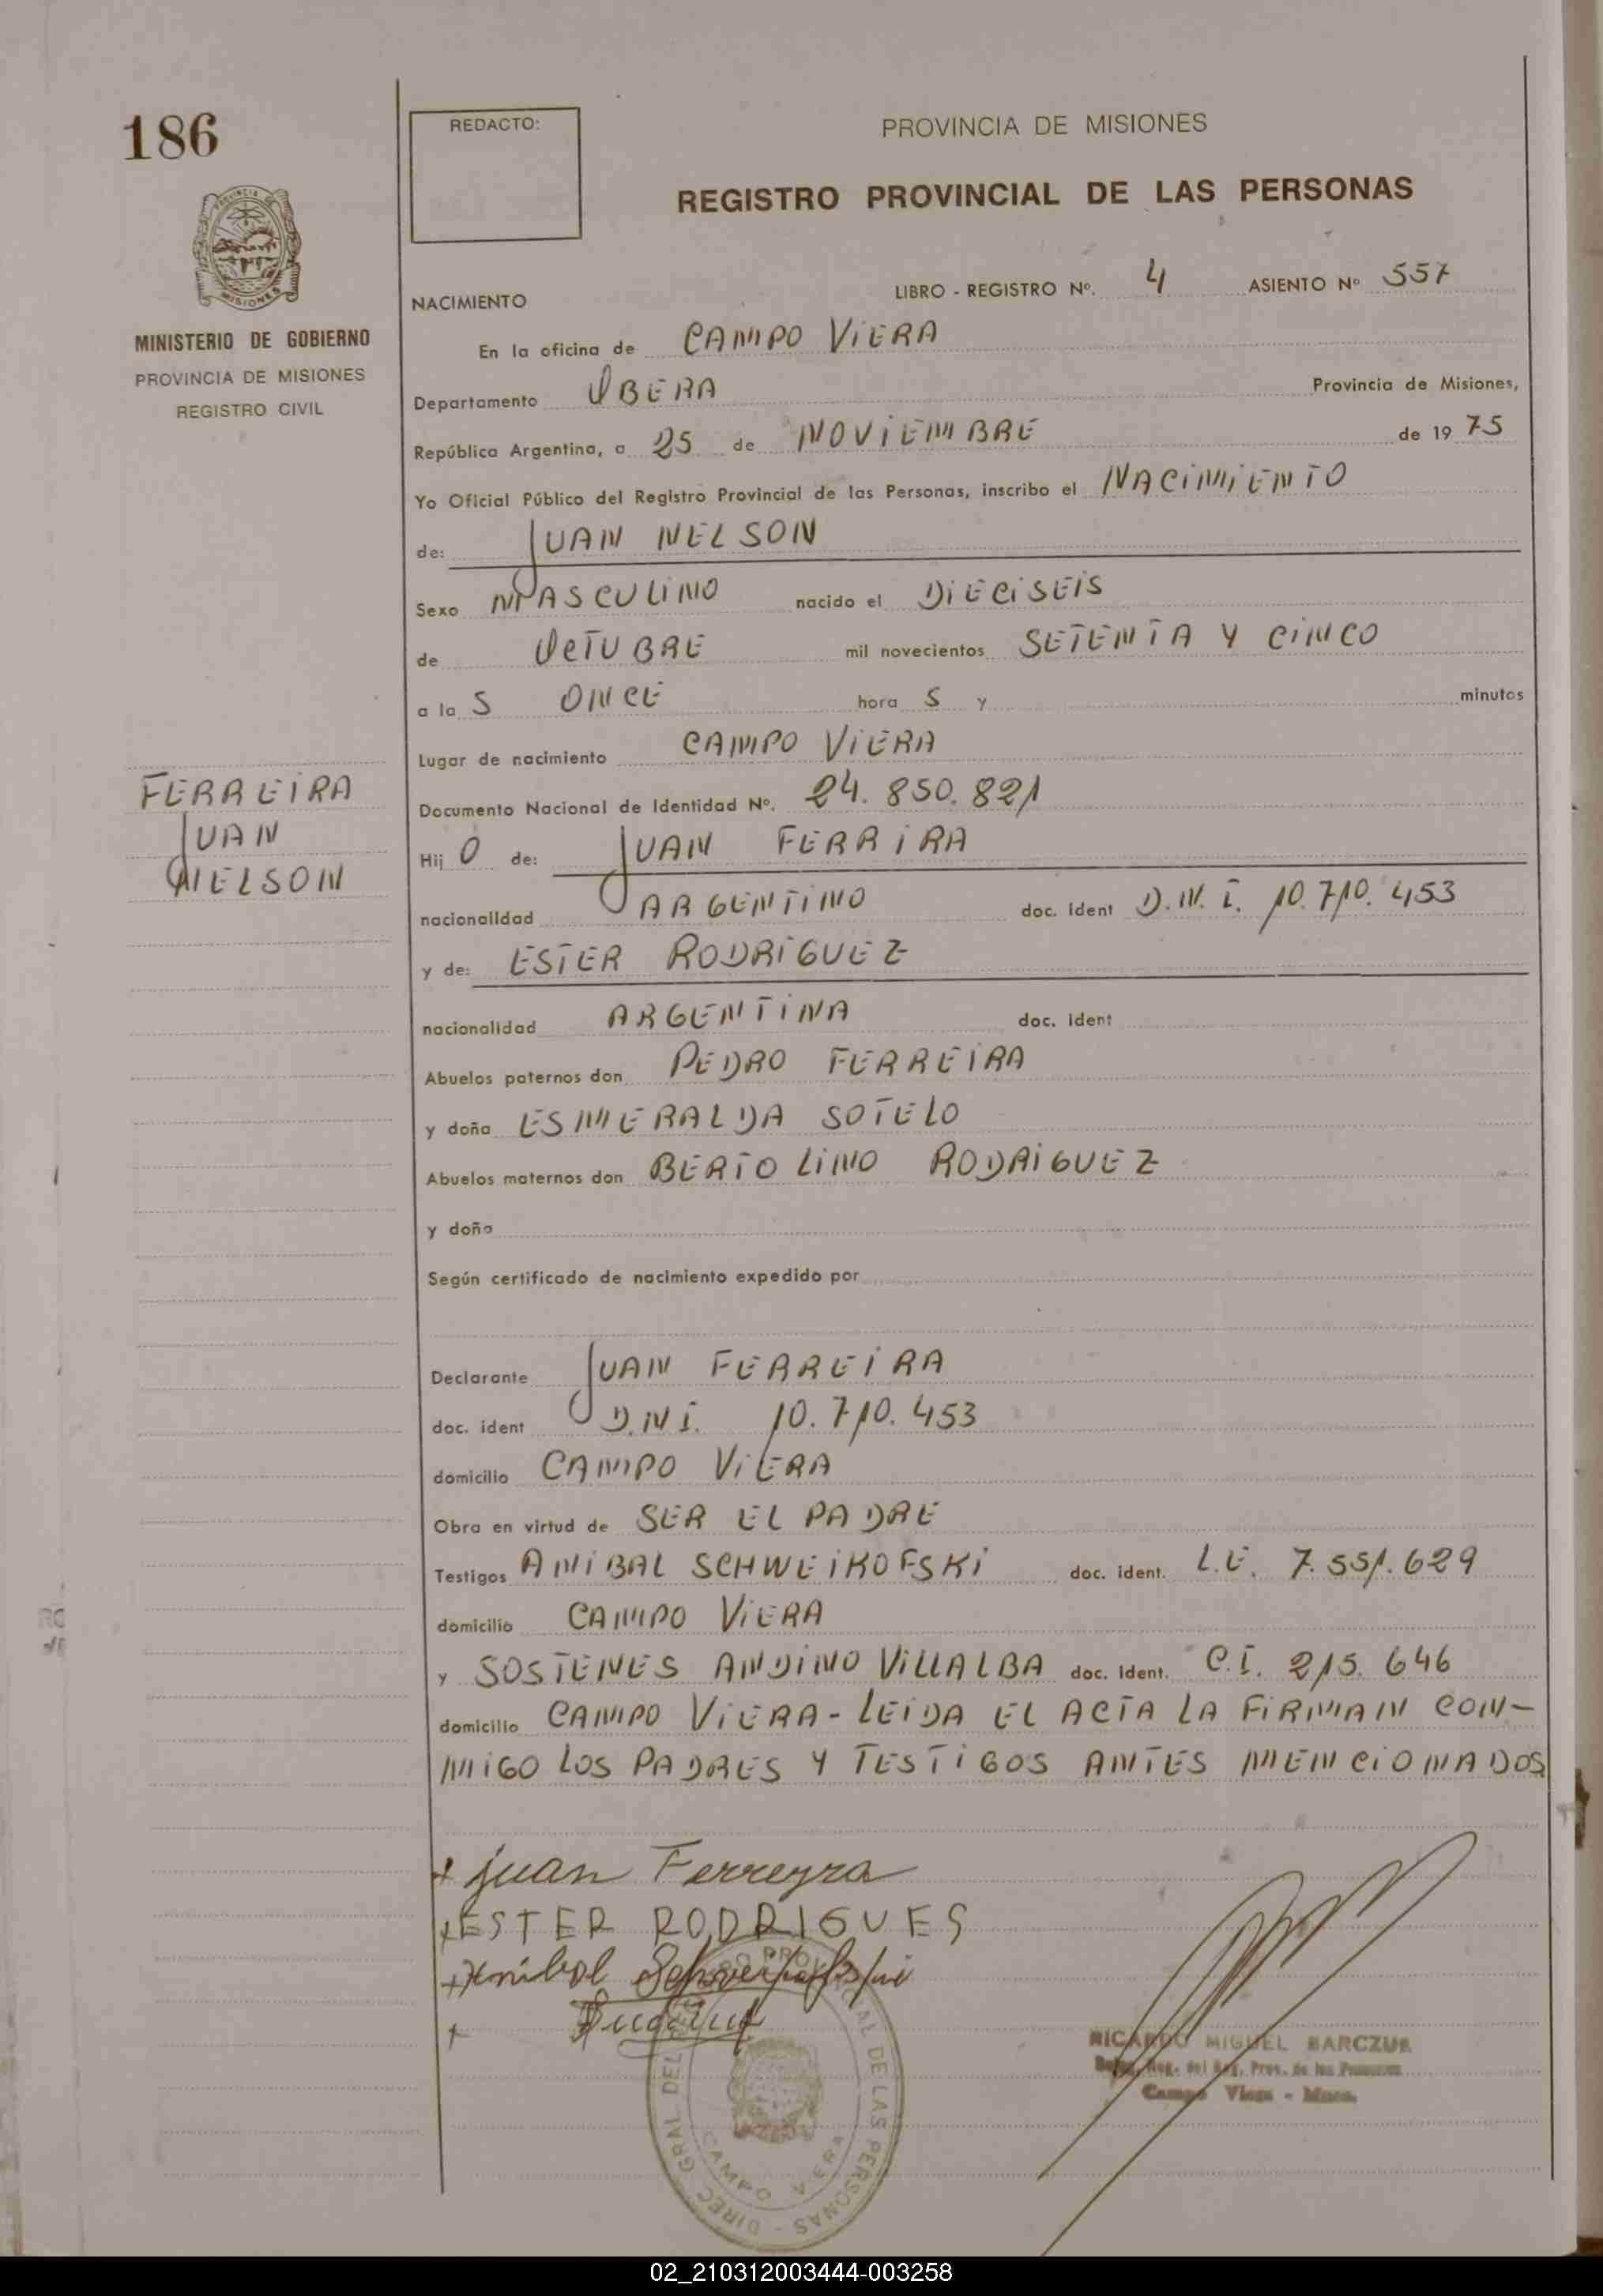 186
REDACTO:
PROVINCIA DE MISIONES
REGISTRO PROVINCIAL DE LAS PERSONAS
PROVINCIA
MISIONES
MINISTERIO DE GOBIERNO
PROVINCIA DE MISIONES
REGISTRO CIVIL
NACIMIENTO
LIBRO - REGISTRO Nº. 4 ASIENTO Nº 557
En la oficina de CAMPO VIERA
Departamento OBERA Provincia de Misiones,
República Argentina, a 25 de NOVIEMBRE de 19 75
Yo Oficial Público del Registro Provincial de las Personas, inscribo el NACIMIENTO
de: JUAN NELSON
Sexo MASCULINO nacido el DIECISEIS
de OCTUBRE mil novecientos SETENTA Y CINCO
a la S ONCE hora S y minutos
Lugar de nacimiento CAMPO VIERA
FERREIRA
JUAN
NELSON
Documento Nacional de Identidad Nº. 24.850.821
Hij O de: JUAN FERRIRA
nacionalidad ARGENTINO doc. ident D.N.I. 10.710.453
y de: ESTER RODRIGUEZ
nacionalidad ARGENTINA doc. ident
Abuelos paternos don PEDRO FERREIRA
y doña ESMERALDA SOTELO
Abuelos maternos don BERTOLINO RODRIGUEZ
y doña
Según certificado de nacimiento expedido por
Declarante JUAN FERREIRA
doc. ident D.N.I. 10.710.453
domicilio CAMPO VIERA
Obra en virtud de SER EL PADRE
Testigos ANIBAL SCHWEIKOFSKI doc. ident. L.E. 7.551.629
domicilio CAMPO VIERA
y SOSTENES ANDINO VILLALBA doc. ident. C.I. 215.646
domicilio CAMPO VIERA - LEIDA EL ACTA LA FIRMAN CON-
MIGO LOS PADRES Y TESTIGOS ANTES MENCIONADOS
+ juan Ferreyra
+ ESTER RODRIGUES
+ Anibal
+
DIREC GRAL DEL PROVINCIAL DE LAS PERSONAS
CAMPO VIERA
RICARDO MIGUEL BARCZUK
Reg. del Reg. Prov. de las Personas
Campo Viera - Mnes.
02_210312003444-003258